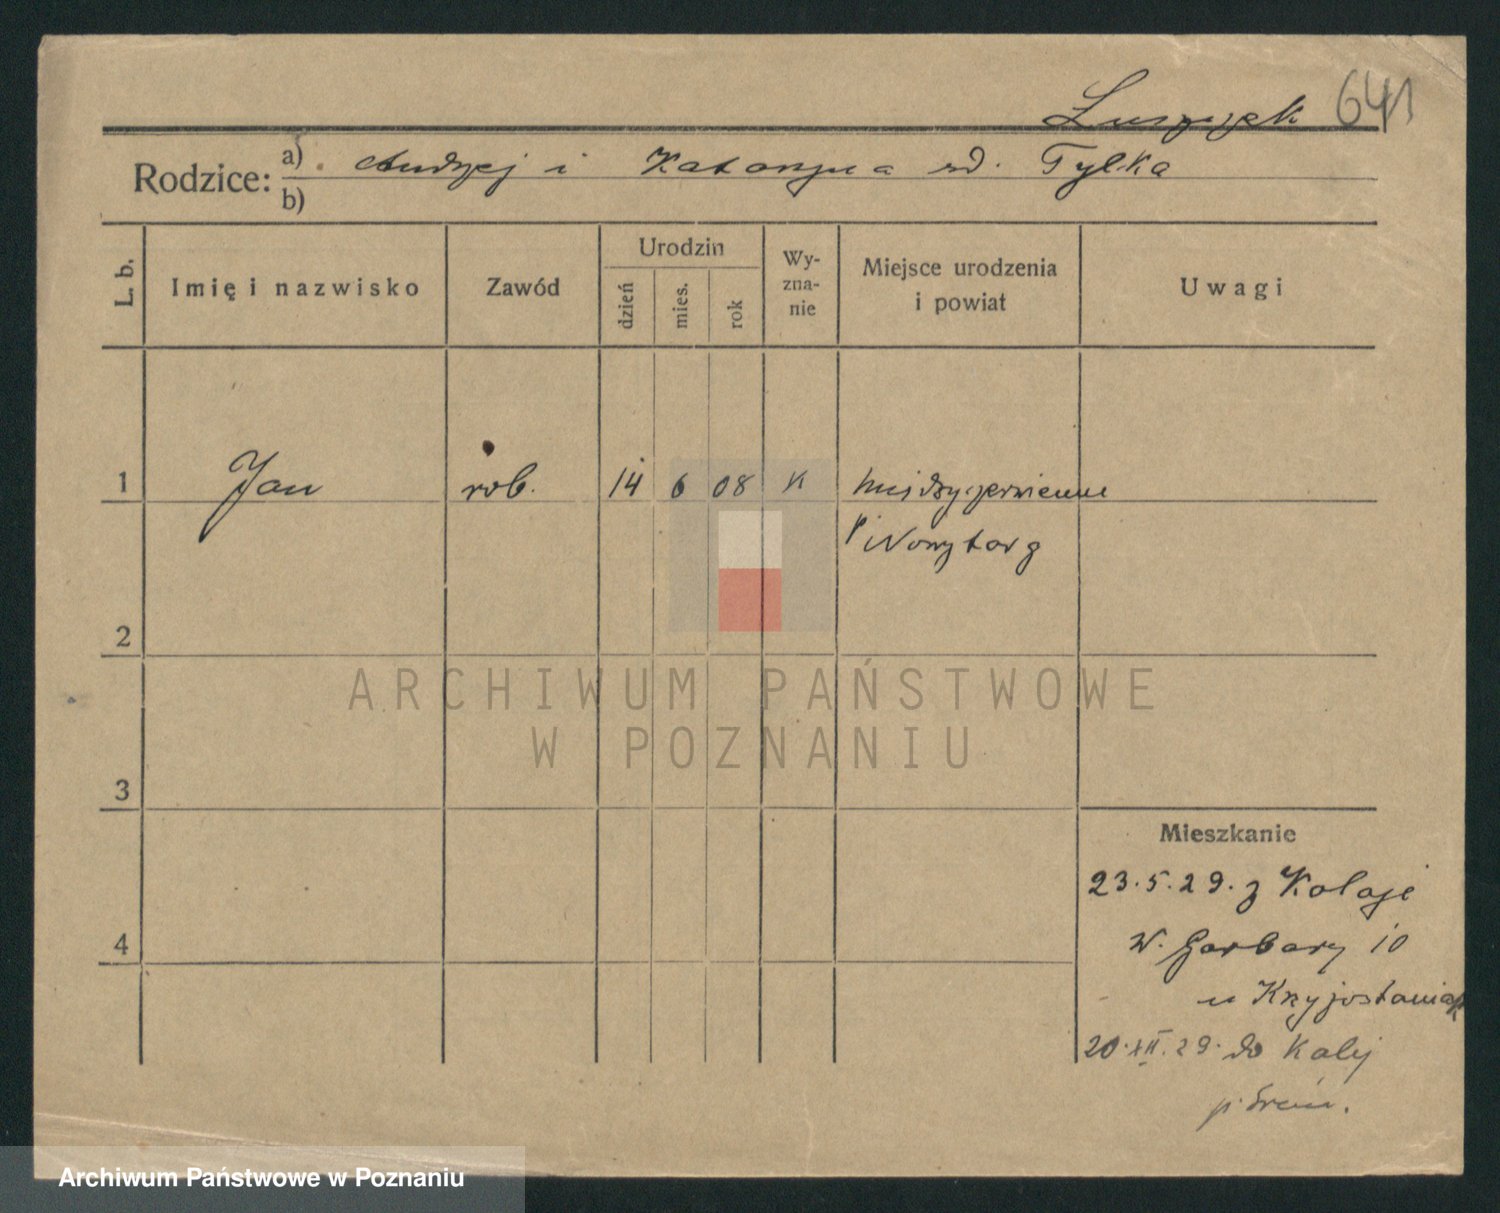 Łuszczek 641
Rodzice: a) Andrzej i Katarzyna rd. Tylka
b)
L. b. Imię i nazwisko Zawód Urodzin dzień mies. rok Wy-zna-nie Miejsce urodzenia i powiat Uwagi
1 Jan rob. 14 6 08 K Międzyczerwienne
p Nowytarg
2
ARCHIWUM PAŃSTWOWE
W POZNANIU
3
Mieszkanie
23.5.29. z Kolaje
4 W. Garbary 10
u Krzyjostaniak
20.XII.29. do Kalej
p. Śrem.
Archiwum Państwowe w Poznaniu